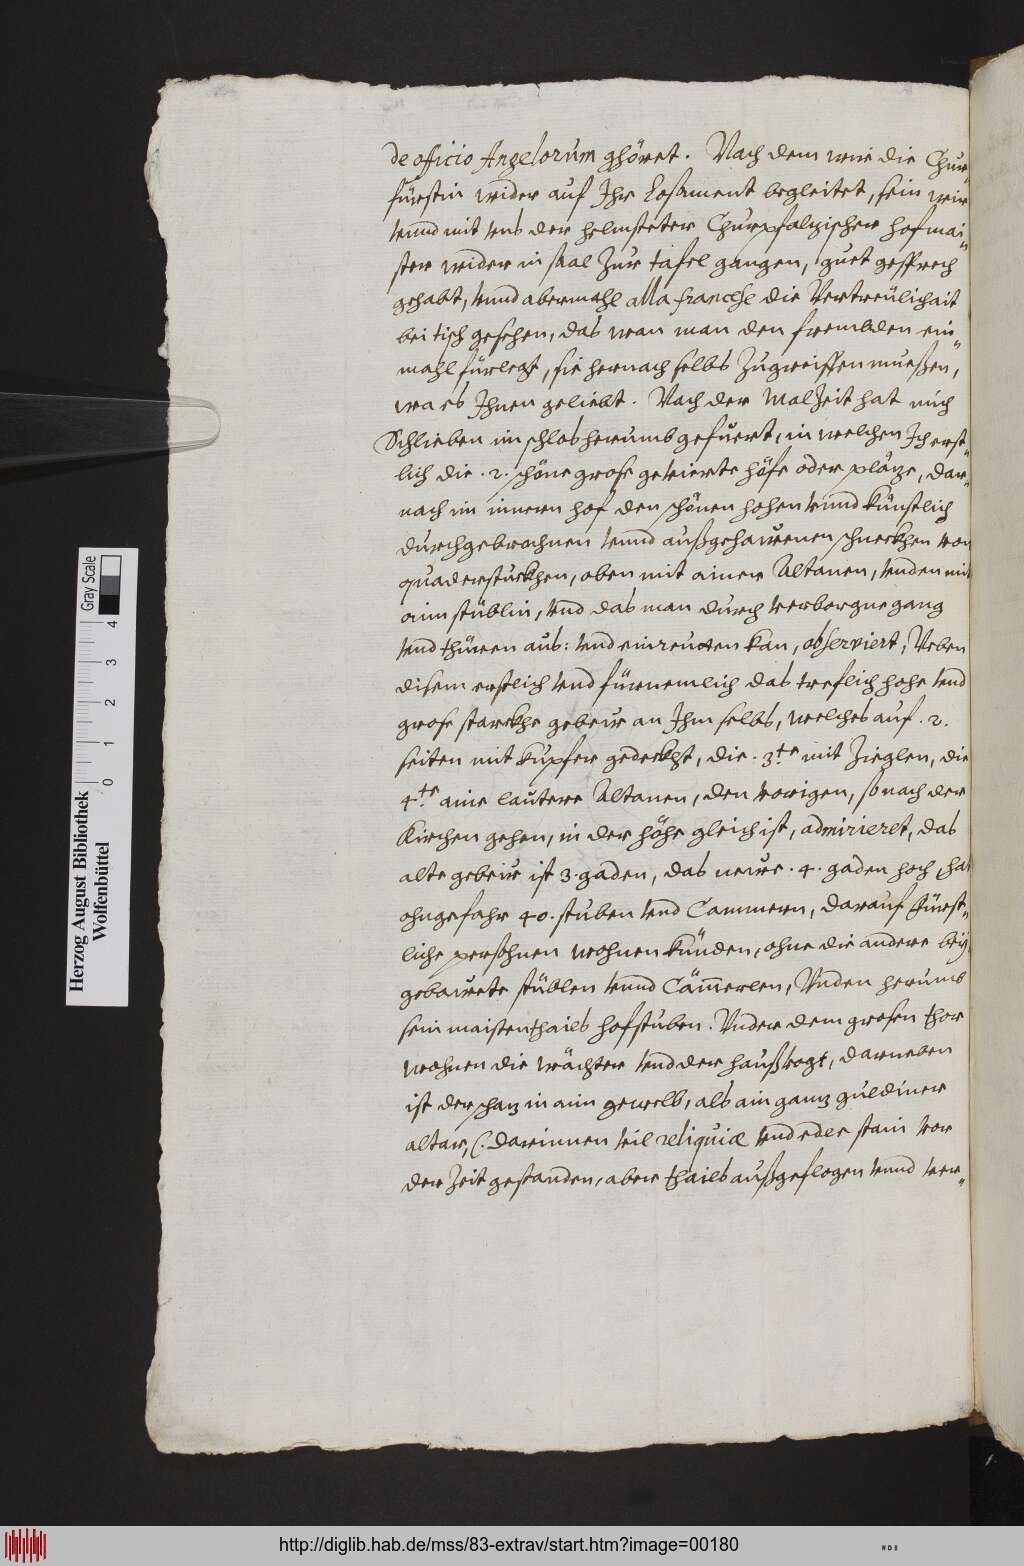 de officio Angelorum ghöret. Nach dem wir die Chur„
fürstin wider auf Ihr Losament begleitet, sein wir
vnnd mit vns der helmsteter Churpfalzischer hofmai„
ster wider in saal zur tafel gangen, guet gesprech
gehabt, vnnd abermahl alla francese die Vertreülichait
bei tisch gesehen, das wan man den frembden ein„
mahl fürlegt, sie hernach selbs zugreiffen mueßen,
wa es Ihnen geliebt. Nach der Malzeit hat mich
Schlieben im schlos herumb gefuert, in welchen Ich erst„
lich die .2. schöne grose gevierte höfe oder pläze, dar„
nach im innern hof den schönen hohen vnnd künstlich
durchgebrochnen vnnd außgehauenen schneckhen von
quaderstuckhen, oben mit ainer Altanen, vnden mit
aim stüblin, vnd das man durch verborgne gang
vnd thüren aus: vnd einreuten kan, observiert, Neben
disem erstlich vnd fürnemlich das treflich hohe vnd
grose starckhe gebeu an Ihm selbs, welches auf .2.
seiten mit kupfer gedeckht, die .3.te mit Zieglen, die
4.te aine lautere Altanen, den vorigen, so nach der
Kirchen gehen, in der höhe gleich ist, admirieret, das
alte gebeu ist 3. gaden, das neue .4. gaden hoch, hat
ohngefahr 40. stuben vnd Cammern, darauf fürst„
liche persohnen wohnen künden, ohne die andere bey
gebauete stüblen vnnd Cam̅erlen, Vnden herumb
sein maistenthails hofstuben. Vnder dem grosen thor
wohnen die wächter vnd der haußvogt, darneben
ist der schaz in aim gewelb, als ain ganz guldiner
altar, (: darinnen vil reliquiæ vnd edle stain vor
der Zeit gestanden, aber thails außgeflogen vnnd ver„
Herzog August Bibliothek
Wolfenbüttel
0 1 2 3 4
Gray Scale
http://diglib.hab.de/mss/83-extrav/start.htm?image=00180